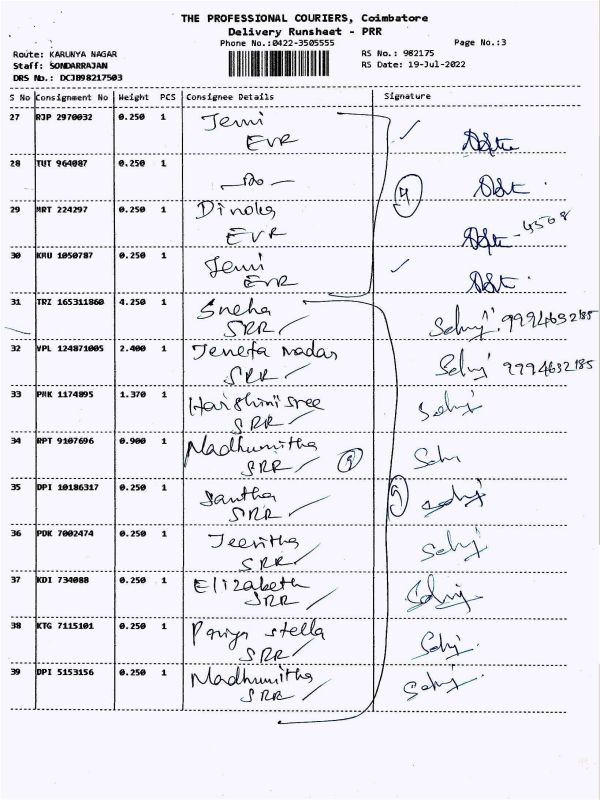 THE PROFESSIONAL COURIERS, Coimbatore
Delivery Runsheet - PRR
Phone No.:0422-3505555
Page No.:3
Route: KARUNYA NAGAR
RS No.: 982175
Staff: SONDARRAJAN
RS Date: 19-Jul-2022
DRS No.: DCJB98217503
S No Consignment No Weight PCS Consignee Details Signature
27 RJP 2970032 0.250 1 Jemi
EVR
28 TUT 964087 0.250 1 -Do-
29 MRT 224297 0.250 1
EVR
30 KMU 1050787 0.250 1 Jemi
EVR
31 TRZ 165311860 4.250 1 Sneha
SRR
32 VPL 124871005 2.400 1 Jenefa
SRR
33 PMK 1174895 1.370 1
SRR
34 RPT 9107696 0.900 1 Madhumitha
SRR
35 DPI 10186317 0.250 1 Santha
SRR
36 PDK 7002474 0.250 1
SRR
37 KDI 734088 0.250 1 Elizabeth
SRR
38 KTG 7115101 0.250 1 Pariya stella
SRR
39 DPI 5153156 0.250 1 Madhumitha
SRR